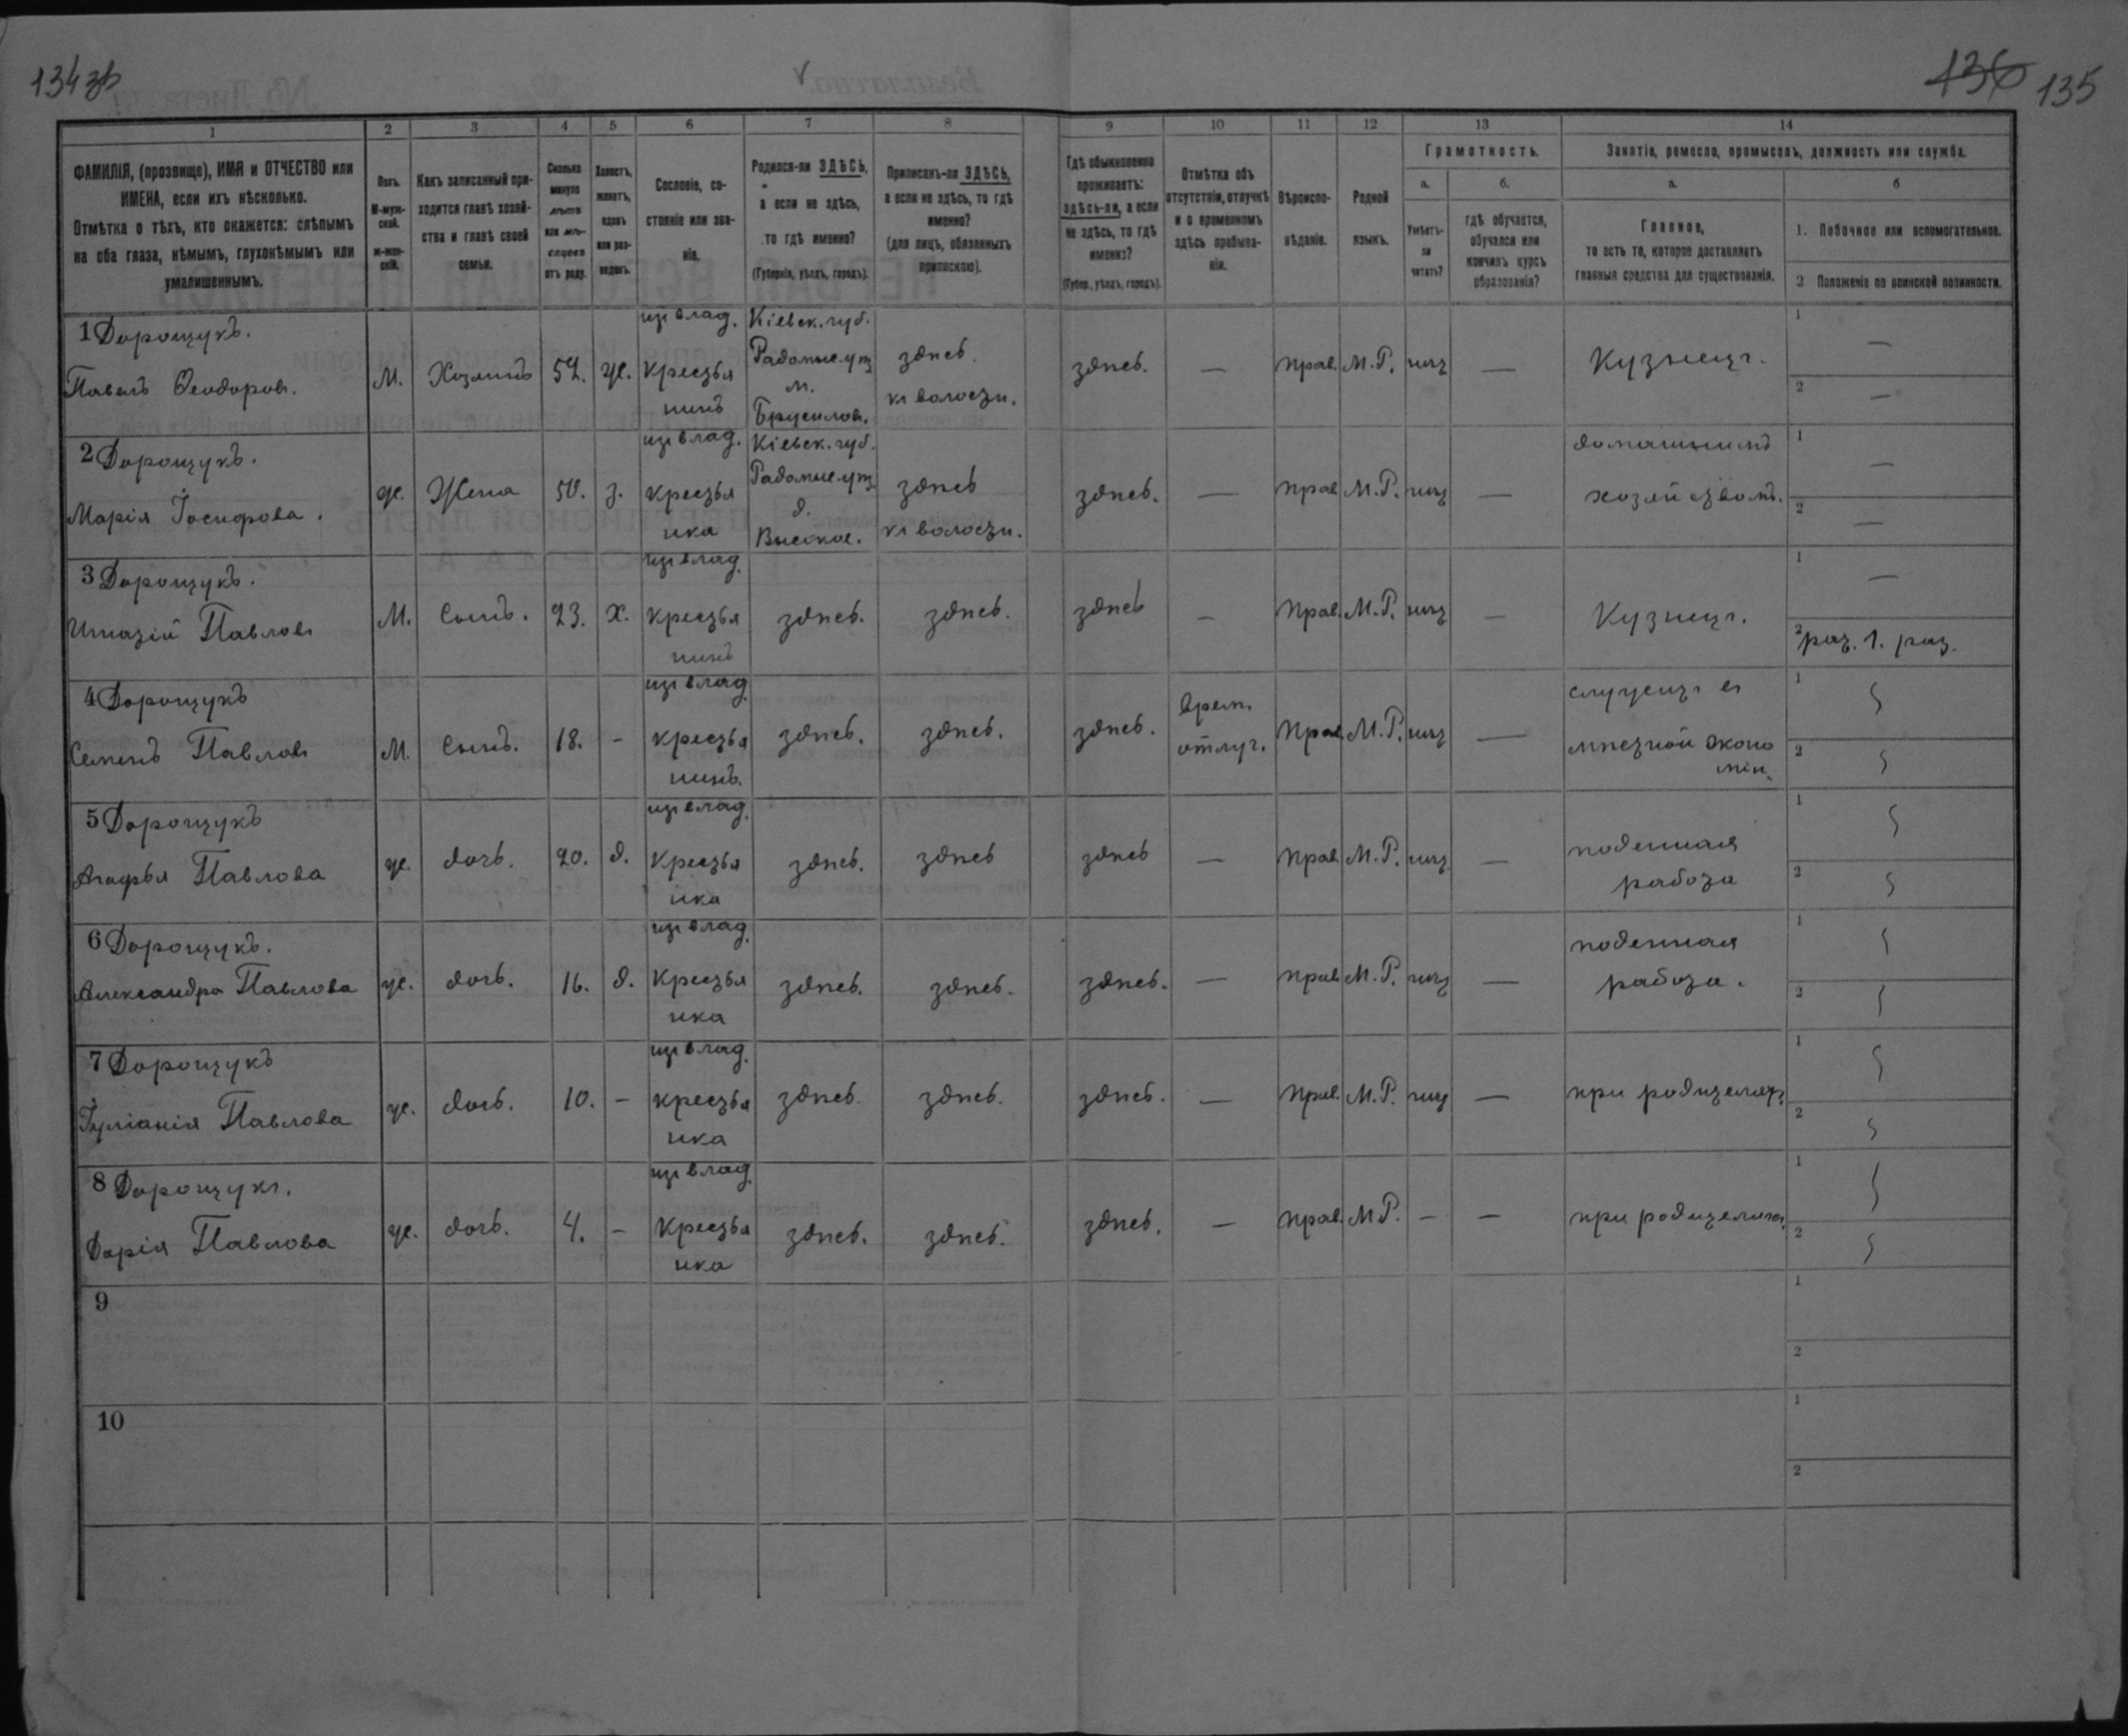 134 зв
136 135
1 2 3 4 5 6 7 8 9 10 11 12 13 14
ФАМИЛІЯ, (прозвище), ИМЯ и ОТЧЕСТВО или
ИМЕНА, если ихъ нѣсколько.
Отмѣтка о тѣхъ, кто окажется: слѣпымъ
на оба глаза, нѣмымъ, глухонѣмымъ или
умалишеннымъ.
Полъ.
М-муж-
ской.
ж-жен-
скій.
Какъ записанный при-
ходится главѣ хозяй-
ства и главѣ своей
семьи.
Сколько
минуло
лѣтъ
или мѣ-
сяцевъ
отъ роду.
Холостъ,
женатъ,
вдовъ
или раз-
веденъ.
Сословіе, со-
стояніе или зва-
ніе.
Родился-ли ЗДѢСЬ,
а если не здѣсь,
то гдѣ именно?
(Губернія, уѣздъ, городъ).
Приписанъ-ли ЗДѢСЬ,
а если не здѣсь, то гдѣ
именно?
(для лицъ, обязанныхъ
припискою).
Гдѣ обыкновенно
проживаетъ:
здѣсь-ли, а если
не здѣсь, то гдѣ
именно?
(Губер., уѣздъ, городъ).
Отмѣтка объ
отсутствіи, отлучкѣ
и о временномъ
здѣсь пребыва-
ніи.
Вѣроиспо-
вѣданіе.
Родной
языкъ.
Грамотность.
а.
Умѣетъ-
ли
читать?
б.
гдѣ обучается,
обучался или
кончилъ курсъ
образованія?
Занятіе, ремесло, промыселъ, должность или служба.
а.
Главное,
то есть то, которое доставляетъ
главныя средства для существованія.
б
1. Побочное или вспомогательное.
2 Положеніе по воинской повинности.
1 Дорощукъ.
Павелъ Ѳеодоров.
М. Хозяинъ 52. ж.
из влад.
крестья
нинъ
Кіевск. губ.
Радомыс. уѣз
м.
Брусилов.
здѣсь.
къ волости.
здѣсь. — прав. М.Р. нѣт —
Кузнецъ.
1 —
2 —
2 Дорощукъ.
Марія Іосифова.
ж. Жена 50. з.
из влад.
крестья
нка
Кіевск. губ.
Радомыс. уѣз
д.
Высокое.
здѣсь
къ волости.
здѣсь. — прав М.Р. нѣт —
домашнимъ
хозяйством.
1 —
2 —
3 Дорощукъ.
Игнатій Павлов
М. Сынъ. 23. х.
из влад.
крестья
нинъ
здѣсь. здѣсь. здѣсь — прав. М.Р. нѣт —
Кузнецъ.
1 —
2 рат. 1. раз.
4 Дорощукъ
Семенъ Павлов
М. Сынъ. 18. -
из влад
крестья
нинъ.
здѣсь. здѣсь. здѣсь.
врем.
отлуч.
Прав М.Р. нѣт —
служитъ въ
мѣстной эконо
міи.
1
2
5 Дорощукъ
Агафья Павлова
ж. дочь. 20. д.
из влад.
Крестья
нка
здѣсь. здѣсь здѣсь — прав М.Р. нѣт. —
поденная
работа
1
2
6 Дорощукъ.
Александра Павлова
ж. дочь. 16. д.
из влад.
Крестья
нка
здѣсь. здѣсь. здѣсь. — прав М.Р. нѣт —
поденная
работа.
1
2
7 Дорощукъ
Іуліанія Павлова
ж. дочь. 10. -
из влад.
крестья
нка
здѣсь. здѣсь. здѣсь. — прав. М.Р. нѣт —
при родителях
1
2
8 Дорощукъ.
Дарія Павлова
ж. дочь. 4. -
из влад.
Крестья
нка
здѣсь. здѣсь. здѣсь. — прав. М Р. - —
при родителях.
1
2
9
1
2
10
1
2